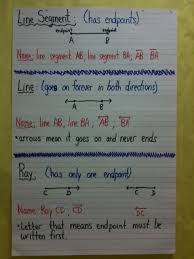 Line Segment: (has endpoints)
endpoint endpoint
A B
Name: line segment AB, line segment BA, AB BA
Line: (goes on forever in both directions)
A B
Name: line AB, line BA, AB, BA
* arrows mean it goes on and never ends
Ray: (has only one endpoint)
C D C D
Name: Ray CD, CD DC
* Letter that means endpoint must be
written first.